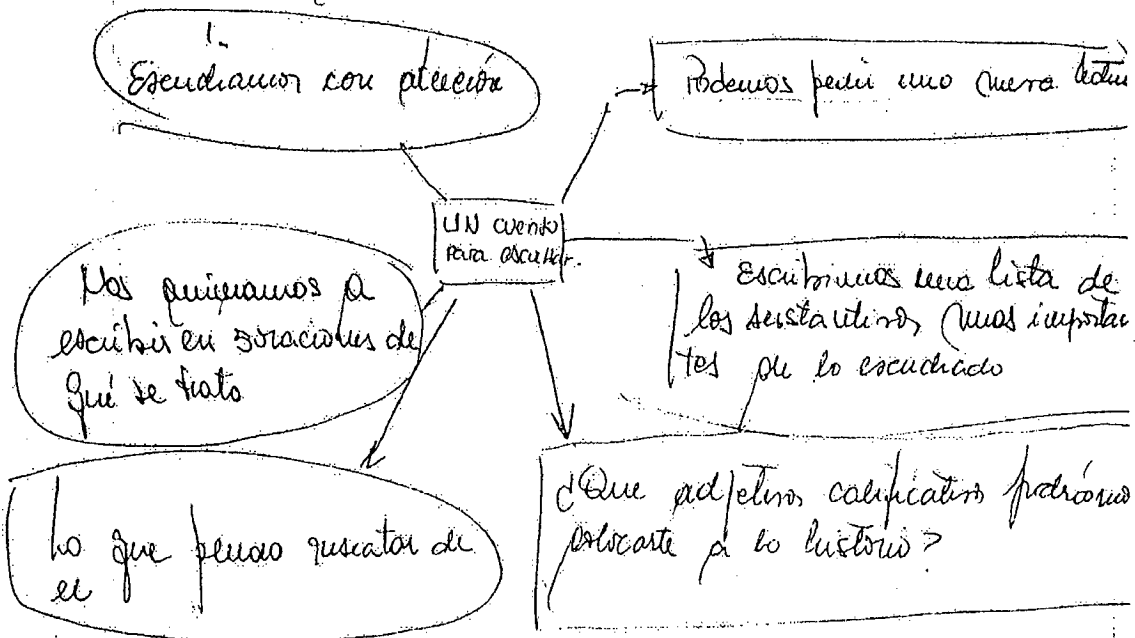 1.
Escuchamos con atención
Podemos pedir una nueva lectu
UN cuento
para escuchar.
Nos animamos a
escribir en oraciones de
qué se trato
Escribimos una lista de
los sustantivos mas importan
tes de lo escuchado
Lo que puedo rescatar de
el
¿Que adjetivos calificativos podríamo
colocarle a la historia?